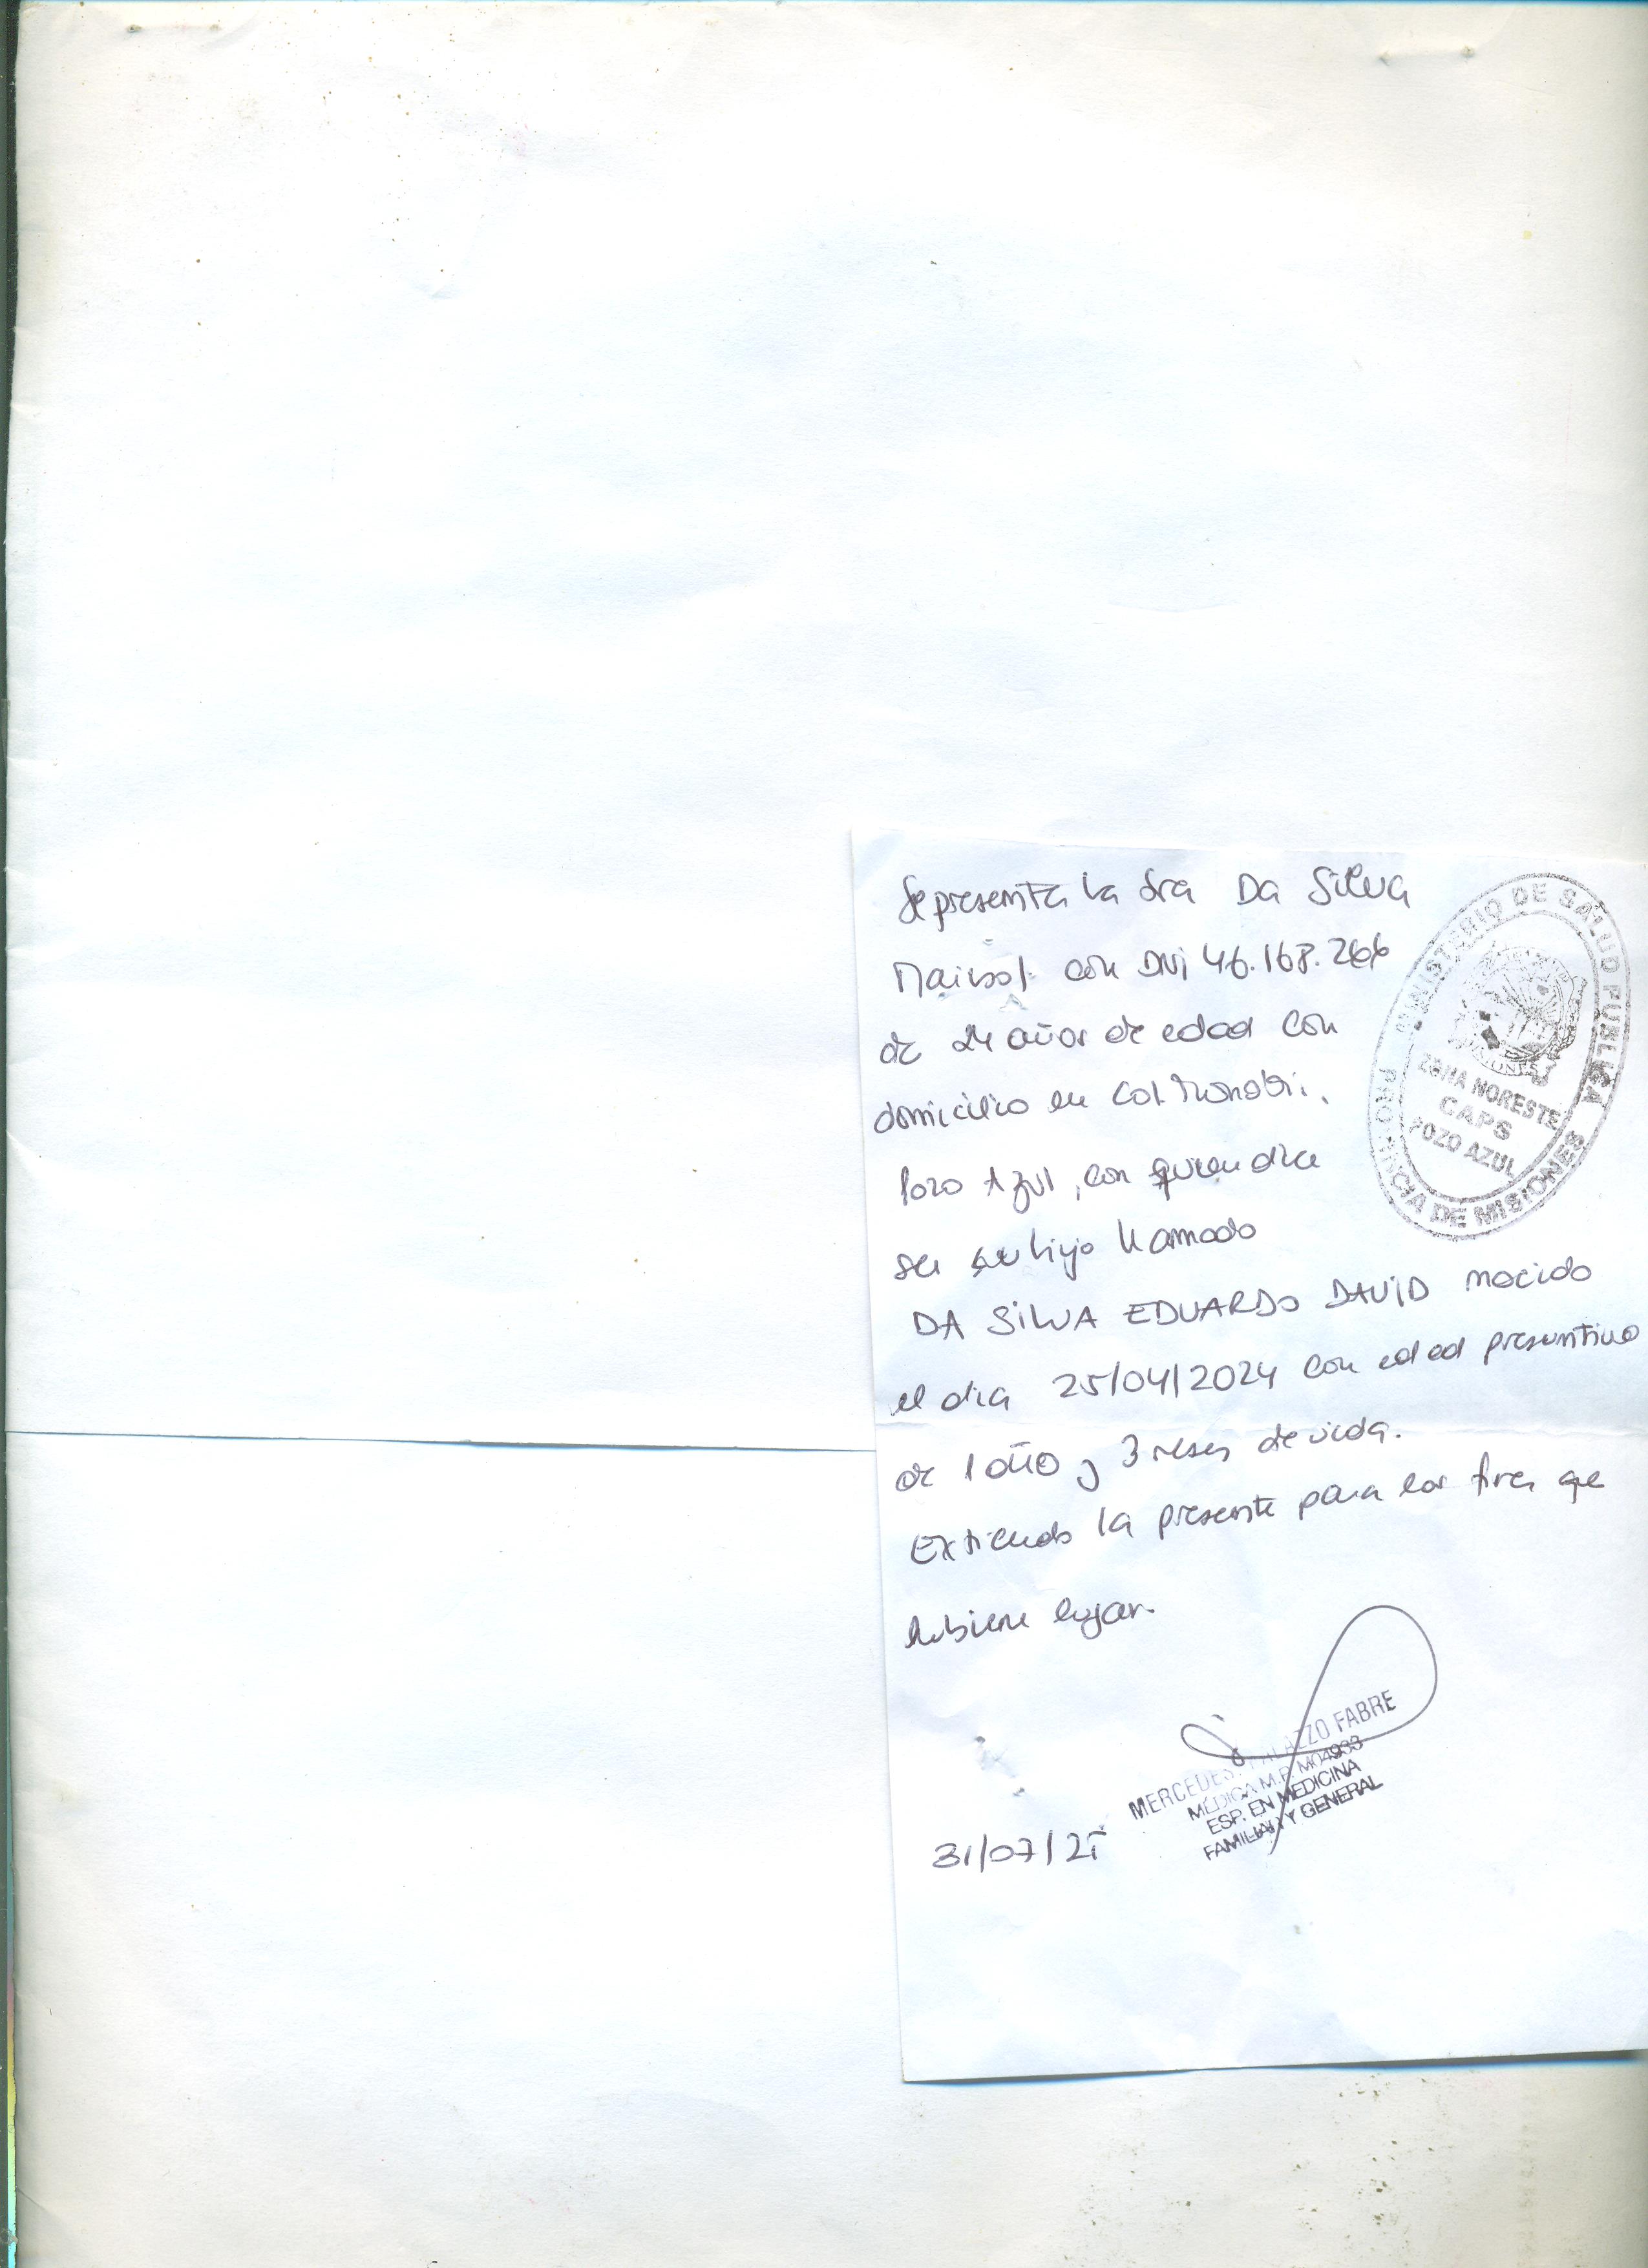 Se presenta la Sra Da Silva
Marisol con DNI 46.168.266
de 24 años de edad con
domicilio en Col.
Pozo Azul, con quien dice
ser su hijo llamado
DA SILVA EDUARDO DAVID nacido
el dia 25/04/2024 con edad presuntiva
de 1 año y 3 meses de vida.
Extiendo la presente para los fines que
hubiere lugar.
31/07/25
MINISTERIO DE SALUD PUBLICA
PROVINCIA DE MISIONES
ZONA NORESTE
CAPS
POZO AZUL
MERCEDES PALAZZO FABRE
MÉDICA M.P. M04933
ESP. EN MEDICINA
FAMILIAR Y GENERAL